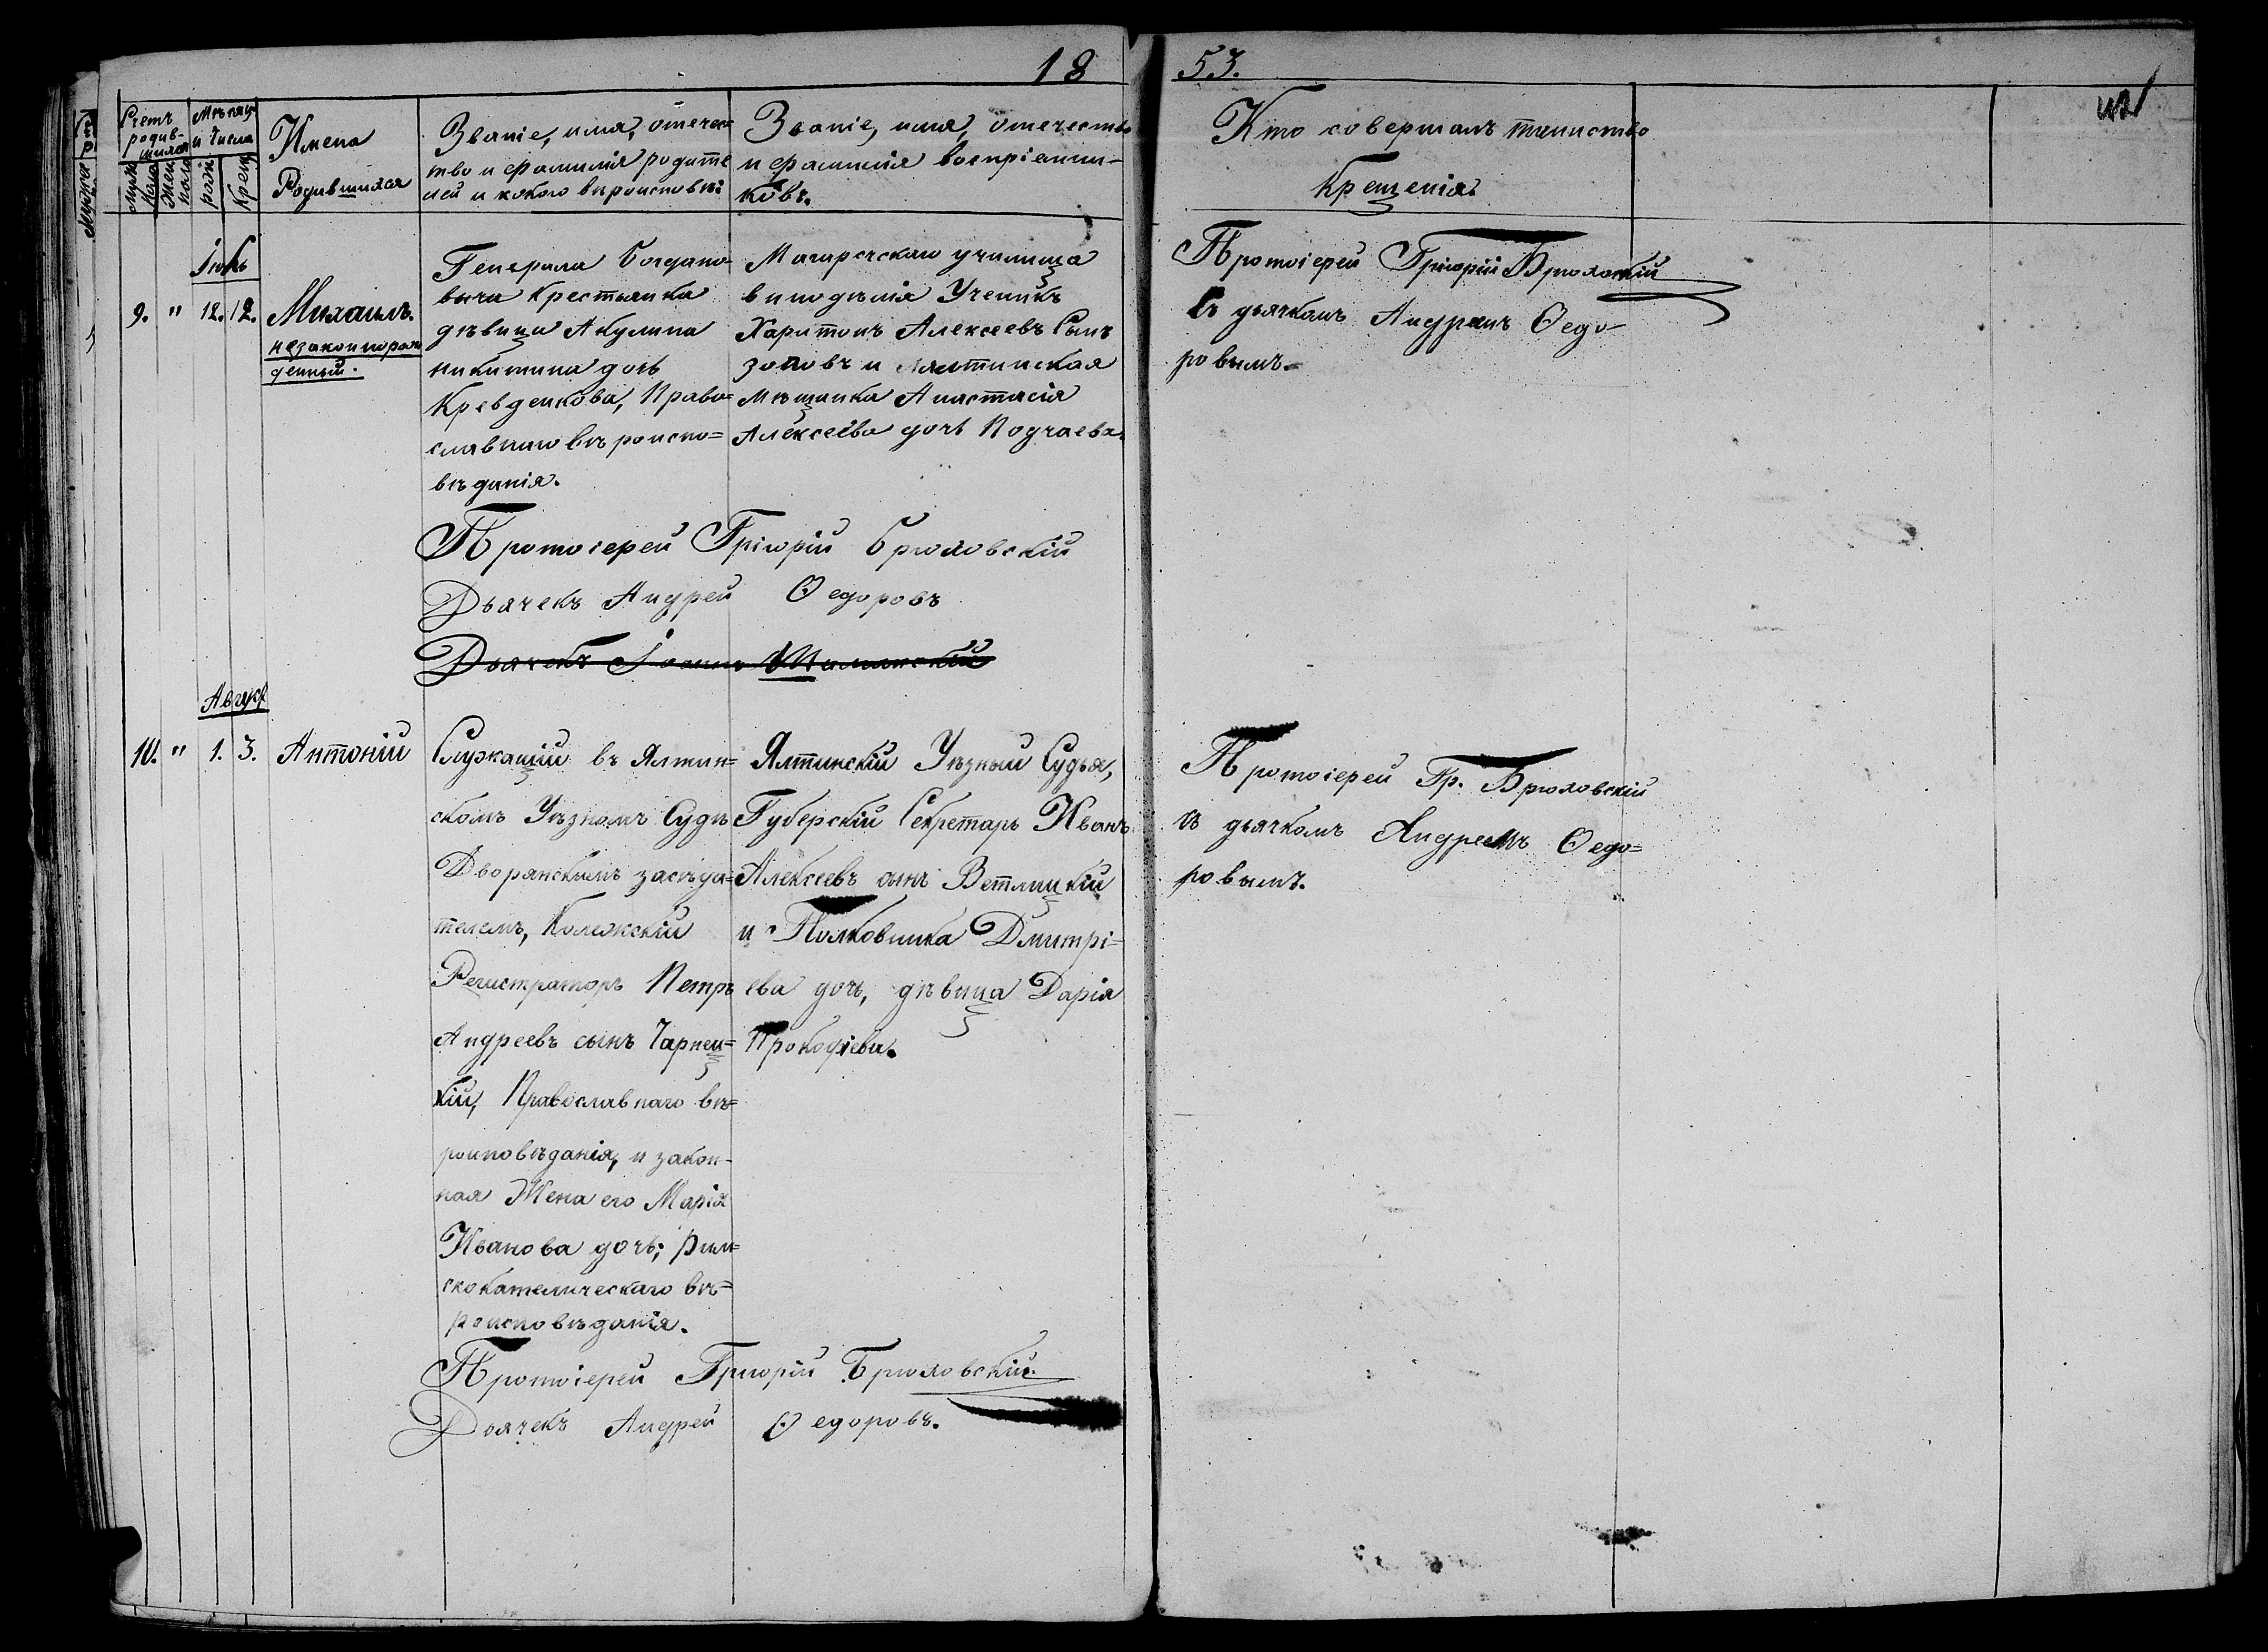 18 53.
Счетъ родив-
шихся
Мѣсяцъ
и Числа
Муж.
пола
Жен.
пола
рож.
Крещ.
Имена
Родившихся
Званіе, имя, отечес-
тво и фамилія родите
лей и какого вѣроисповѣ:
Званіе, имя, отечество
и фамилія воспріемни-
ковъ.
Кто совершалъ таинство
Крещенія.
Іюль
9. " 12. 12.
Михаилъ.
незаконнорож
денный.
Генерала Богдано
вича Крестьянка
дѣвица Акулина
никитина дочь
Кревденкова, Право-
славнаго вѣроиспо=
вѣданія.
Магарачскаго училища
винодѣлія Ученикъ
Харитонъ Алексеевъ Сынъ
зотовъ и Ялтинская
Мѣщанка Анастасія
Алексеева дочь Подчаева.
Протоіерей Григорій Брюховскій
съ дьячкомъ Андреемъ Ѳедо-
ровымъ.
Протоіерей Григорій Брюховскій
Дьячекъ Андрей Ѳедоровъ
Дьячекъ Іоаннъ
Август
10. " 1. 3.
Антоній
Служащій въ Ялтин=
скомъ Уѣзномъ Судѣ
Дворянскимъ засѣда=
телемъ, Колежскій
Регистраторъ Петръ
Андреевъ сынъ Чарнец=
кій, Православнаго вѣ=
роисповѣданія, и закон-
ная Жена его Марія
Иванова дочь; Рим=
скокатолическаго вѣ=
роисповѣданія.
Ялтинскій Уѣзный Судья,
Губерскій Секретарь Иванъ
Алексеевъ сынъ Ветлицкій
и Полковника Дмитрі=
ева дочь, дѣвица Дарія
Прокофіева.
Протоіерей Гр. Брюховскій
съ дьячкомъ Андреемъ Ѳедо=
ровымъ.
Протоіерей Григорій Брюховскій.
Дьячекъ Андрей Ѳедоровъ.